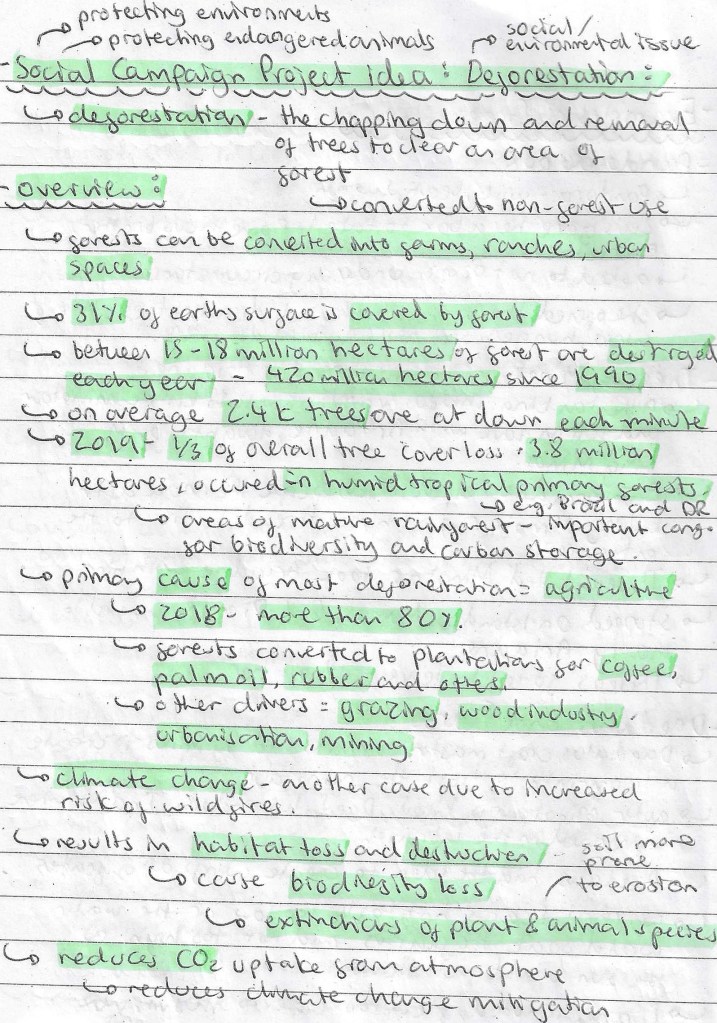 protecting environments
protecting endangered animals
social/
environmental issue
- Social Campaign Project idea: Deforestation:
deforestation - the chopping down and removal
of trees to clear an area of
forest
- overview:
converted to non-forest use
forests can be converted into farms, ranches, urban
spaces
31% of earths surface is covered by forest
between 15-18 million hectares of forest are destroyed
each year - 420 million hectares since 1990
on average 2.4k trees are cut down each minute
2019 - 1/3 of overall tree cover loss, 3.8 million
hectares, occured in humid tropical primary forests.
e.g. Brazil and DR
areas of mature rainforest - important cong.
for biodiversity and carbon storage.
primary cause of most deforestation = agriculture
2018 - more than 80%
forests converted to plantations for coffee,
palm oil, rubber and others.
other drivers = grazing, wood industry.
urbanisation, mining
climate change - another case due to increased
risk of wildfires.
results in habitat loss and destruction - soil more
prone
to erosion
cause biodivesity loss
extinctions of plant & animal species
reduces CO2 uptake from atmosphere
reduces climate change mitigation